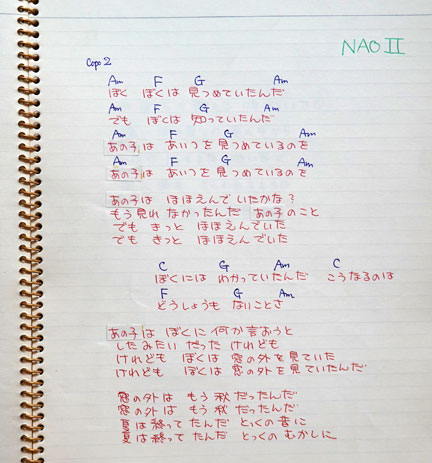 NAO II
Capo 2
Am F G Am
ぼく ぼくは 見つめていたんだ
Am F G Am
でも ぼくは 知っていたんだ
Am F G Am
あの子は あいつを見つめているのを
Am F G Am
あの子は あいつを見つめているのを
あの子は ほほえんでいたかな?
もう見れなかったんだ あの子のこと
でも きっと ほほえんでいた
でも きっと ほほえんでいた
C G Am C
ぼくには わかっていたんだ こうなるのは
F G Am
どうしょうも ないことさ
あの子は ぼくに何か言おうと
したみたい だった けれども
けれども ぼくは 窓の外を見ていた
けれども ぼくは 窓の外を見ていたんだ
窓の外は もう秋だったんだ
窓の外は もう秋だったんだ
夏は終ってたんだ とっくの昔に
夏は終ってたんだ とっくの むかしに